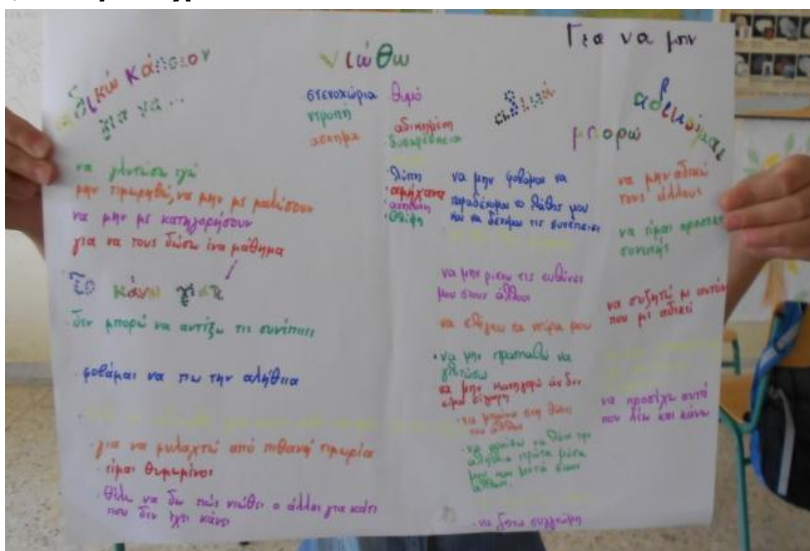 αδικώ κάποιον
για να...
να γλυτώσω εγώ
μην τιμωρηθώ, να μην με μαλώσουν
να μην με κατηγορήσουν
για να τους δώσω ένα μάθημα
Το κάνω γιατί
δεν μπορώ να αντέξω τις συνέπειες
φοβάμαι να πω την αλήθεια
για να φυλαχτώ από πιθανή τιμωρία
είμαι θυμωμένος
θέλω να δω πώς νιώθει ο άλλος για κάτι
που δεν έχει κάνει
νιώθω
στενοχώρια
ντροπή
άσχημα
θυμό
αδικημένη
λύπη
θλίψη
Για να μην
αδικώ
μπορώ
αδικούμαι
να μην φοβάμαι να
παραδέχομαι το λάθος μου
και να δέχομαι τις συνέπειες
να μην ρίχνω τις ευθύνες
μου στους άλλους
να ελέγχω τα νεύρα μου
να μην προσπαθώ να
γλυτώσω
να μην κατηγορώ αν δεν
είμαι σίγουρη
να μπαίνω στη θέση
του άλλου
να ζητώ συγγνώμη
να μην αδικώ
τους άλλους
να είμαι
συνεπής
να συζητώ με αυτόν
που με αδικεί
να προσέχω αυτά
που λέω και κάνω